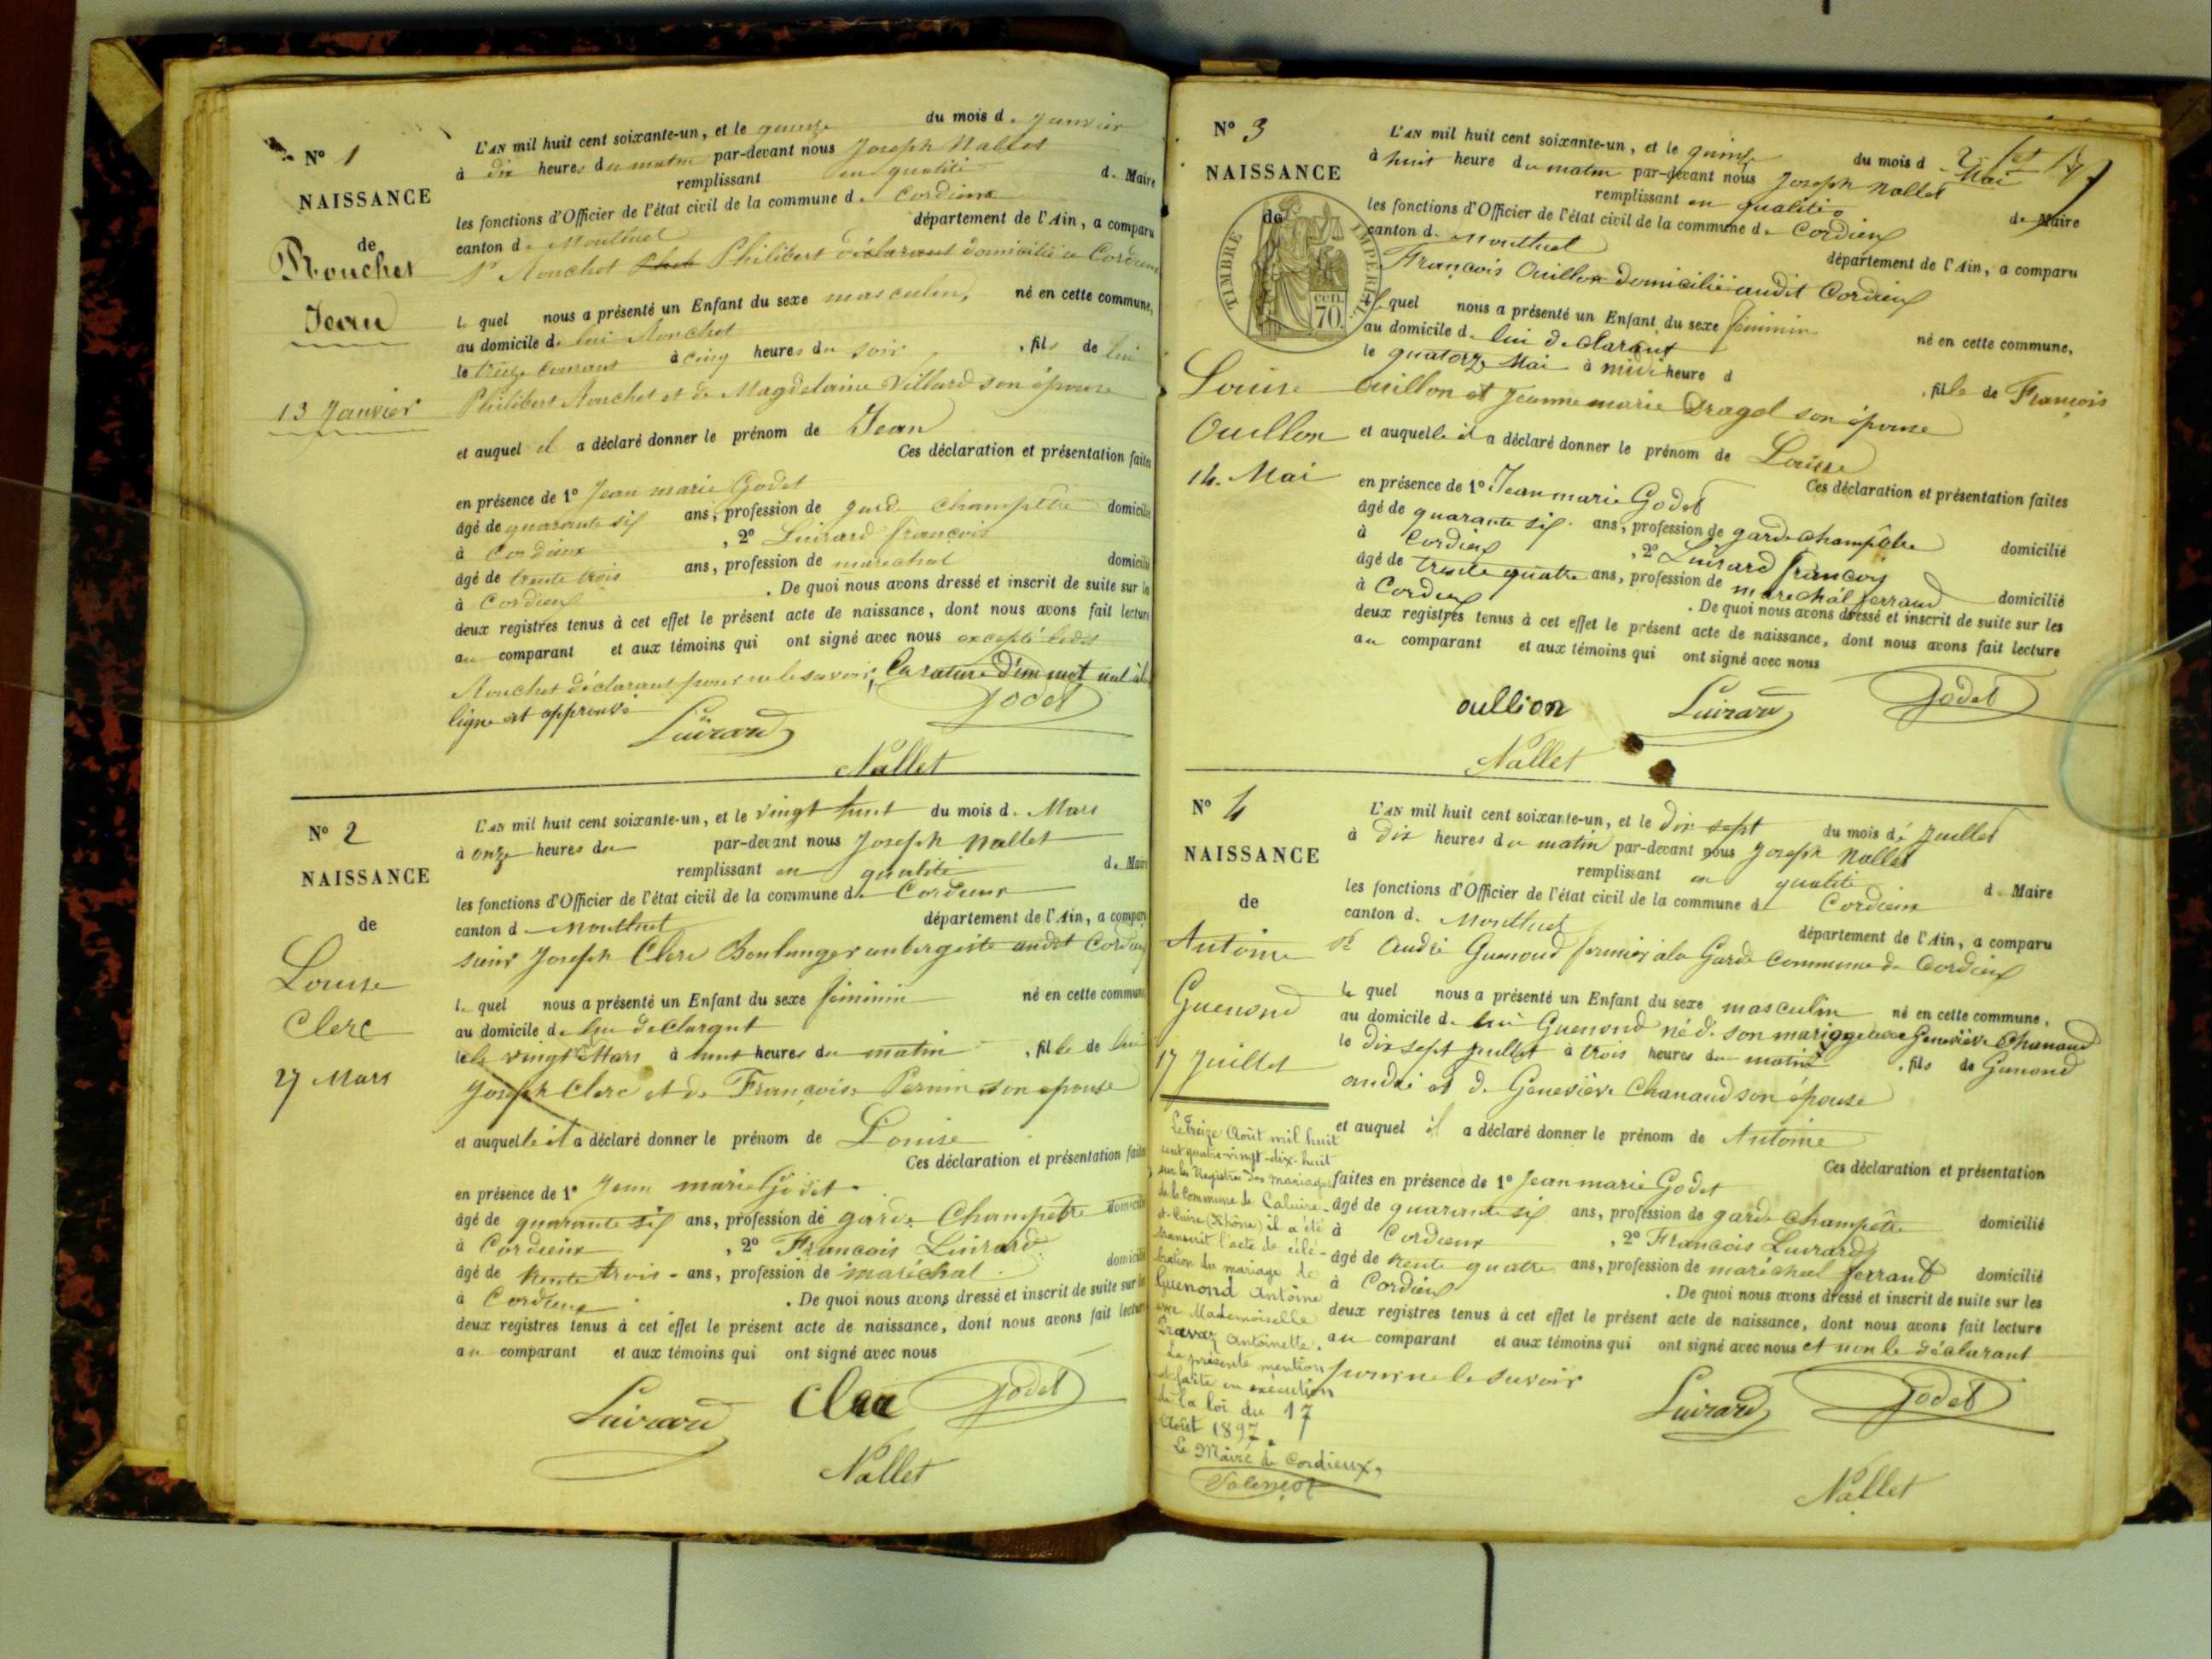 N° 1
NAISSANCE
de
Rouchet
Jean
13 Janvier
L'AN mil huit cent soixante-un, et le quinze du mois de Janvier
à dix heures du matin par-devant nous Joseph Nallet
remplissant en qualité de Maire
les fonctions d'Officier de l'état civil de la commune de Cordieux
canton de Montluel département de l'Ain, a comparu
Sr Rouchet Philibert déclarant domicilié à Cordieux
le quel nous a présenté un Enfant du sexe masculin, né en cette commune,
au domicile de lui Rouchet
le treize courant à cinq heures du soir, fils de lui
Philibert Rouchet et de Magdelaine Villard son épouse
et auquel il a déclaré donner le prénom de Jean
Ces déclaration et présentation faites
en présence de 1° Jean marie Godet
âgé de quarante six ans, profession de garde Champêtre domicilié
à Cordieux, 2° Luirard françois
âgé de trente trois ans, profession de maréchal domicilié
à Cordieux. De quoi nous avons dressé et inscrit de suite sur les
deux registres tenus à cet effet le présent acte de naissance, dont nous avons fait lecture
au comparant et aux témoins qui ont signé avec nous excepté ledit
Rouchet déclarant pour ne le savoir, la rature d'un mot
ligne est approuvé
Luirard
Godet
Nallet
N° 2
NAISSANCE
de
Louise
Clerc
27 Mars
L'AN mil huit cent soixante-un, et le vingt huit du mois de Mars
à onze heures du par-devant nous Joseph Nallet
remplissant en qualité de Maire
les fonctions d'Officier de l'état civil de la commune de Cordieux
canton de Montluel département de l'Ain, a comparu
sieur Joseph Clerc Boulanger aubergiste audit Cordieux
le quel nous a présenté un Enfant du sexe féminin né en cette commune
au domicile de lui déclarant
le vingt Mars à huit heures du matin, fille de lui
Joseph Clerc et de Françoise Pernin son épouse
et auquelle il a déclaré donner le prénom de Louise
Ces déclaration et présentation faites
en présence de 1° Jean marie Godet
âgé de quarante six ans, profession de garde Champêtre domicilié
à Cordieux, 2° Francois Luirard
âgé de trente trois ans, profession de maréchal domicilié
à Cordieux. De quoi nous avons dressé et inscrit de suite sur les
deux registres tenus à cet effet le présent acte de naissance, dont nous avons fait lecture
au comparant et aux témoins qui ont signé avec nous
Luirard
Clerc
Godet
Nallet
N° 3
NAISSANCE
de
TIMBRE IMPÉRIAL
70 cen.
Louise
Ouillon
14 Mai
L'AN mil huit cent soixante-un, et le quinze du mois de Mai
à huit heure du matin par-devant nous Joseph Nallet
remplissant en qualité de Maire
les fonctions d'Officier de l'état civil de la commune de Cordieux
canton de Montluel département de l'Ain, a comparu
François Ouillon domicilié audit Cordieux
le quel nous a présenté un Enfant du sexe féminin né en cette commune,
au domicile de lui déclarant
le quatorze Mai à midi heure d, fille de François
Ouillon et Jeanne marie Dragol son épouse
et auquelle il a déclaré donner le prénom de Louise
Ces déclaration et présentation faites
en présence de 1° Jean marie Godet
âgé de quarante six ans, profession de garde champêtre domicilié
à Cordieux, 2° Luirard françois
âgé de trente quatre ans, profession de maréchal ferrand domicilié
à Cordieux. De quoi nous avons dressé et inscrit de suite sur les
deux registres tenus à cet effet le présent acte de naissance, dont nous avons fait lecture
au comparant et aux témoins qui ont signé avec nous
oullion
Luirard
Godet
Nallet
N° 4
NAISSANCE
de
Antoine
Guenond
17 Juillet
L'AN mil huit cent soixante-un, et le dix sept du mois de Juillet
à dix heures du matin par-devant nous Joseph Nallet
remplissant en qualité de Maire
les fonctions d'Officier de l'état civil de la commune de Cordieux
canton de Montluel département de l'Ain, a comparu
Sr André Guenond fermier à la Garde commune de Cordieux
le quel nous a présenté un Enfant du sexe masculin né en cette commune,
au domicile de lui Guenond né de son mariage avec Geneviève Chanaud
le dix sept juillet à trois heures du matin, fils de Guenond
andré et de Geneviève Chanaud son épouse
et auquel il a déclaré donner le prénom de Antoine
Ces déclaration et présentation
faites en présence de 1° Jean marie Godet
âgé de quarante six ans, profession de garde champêtre domicilié
à Cordieux, 2° Francois Luirard
âgé de trente quatre ans, profession de maréchal ferrant domicilié
à Cordieux. De quoi nous avons dressé et inscrit de suite sur les
deux registres tenus à cet effet le présent acte de naissance, dont nous avons fait lecture
au comparant et aux témoins qui ont signé avec nous et non le déclarant
pour ne le savoir
Luirard
Godet
Nallet
Le treize Août mil huit
cent quatre-vingt-dix-huit
sur les Registres des mariages
de la Commune de Caluire-
et-Cuire (Rhône) il a été
transcrit l'acte de célé-
bration du mariage de
Guenond Antoine
avec Mademoiselle
Gravaz Antoinette.
La présente mention
est faite en exécution
de la loi du 17
Août 1897.
Le Maire de Cordieux,